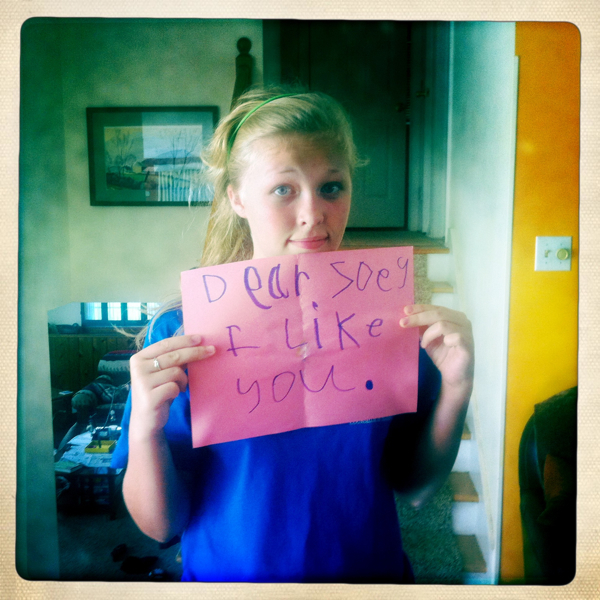 Dear Joey
I Like
you.